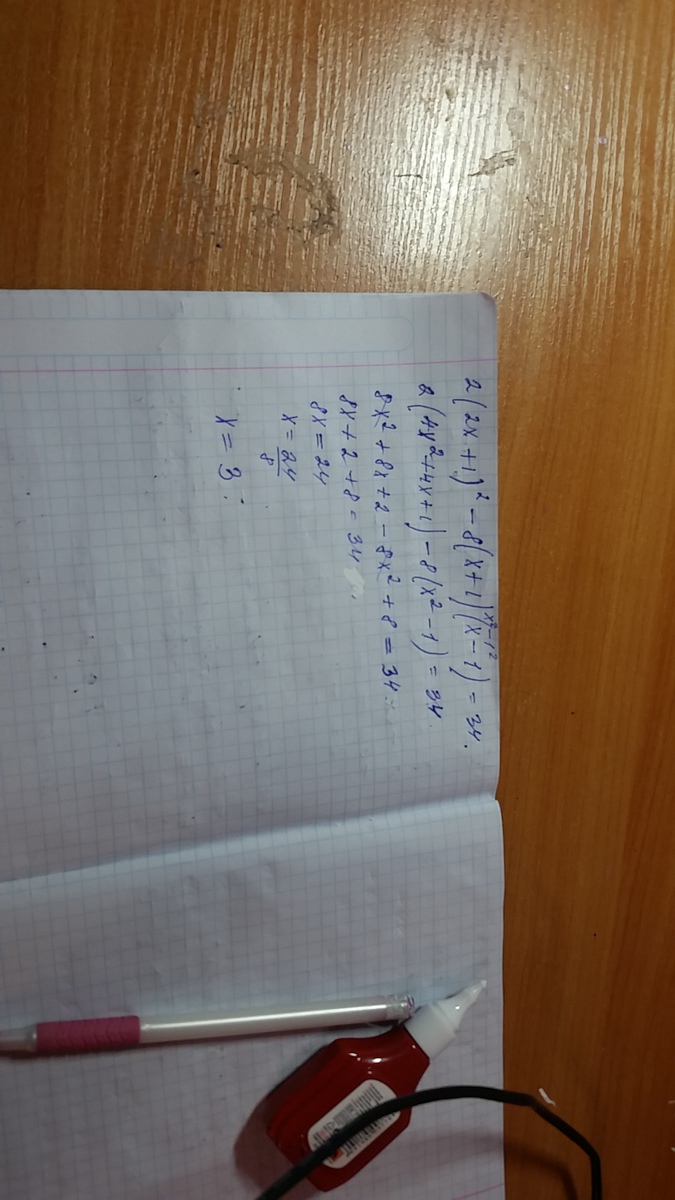 2(2x+1)² - 8(x+1)(x-1) = 34.
x²-1²
2(4x²+4x+1) - 8(x²-1) = 34
8x²+8x+2-8x²+8=34
8x+2+8=34
8x=24
x=24/8
x=3.